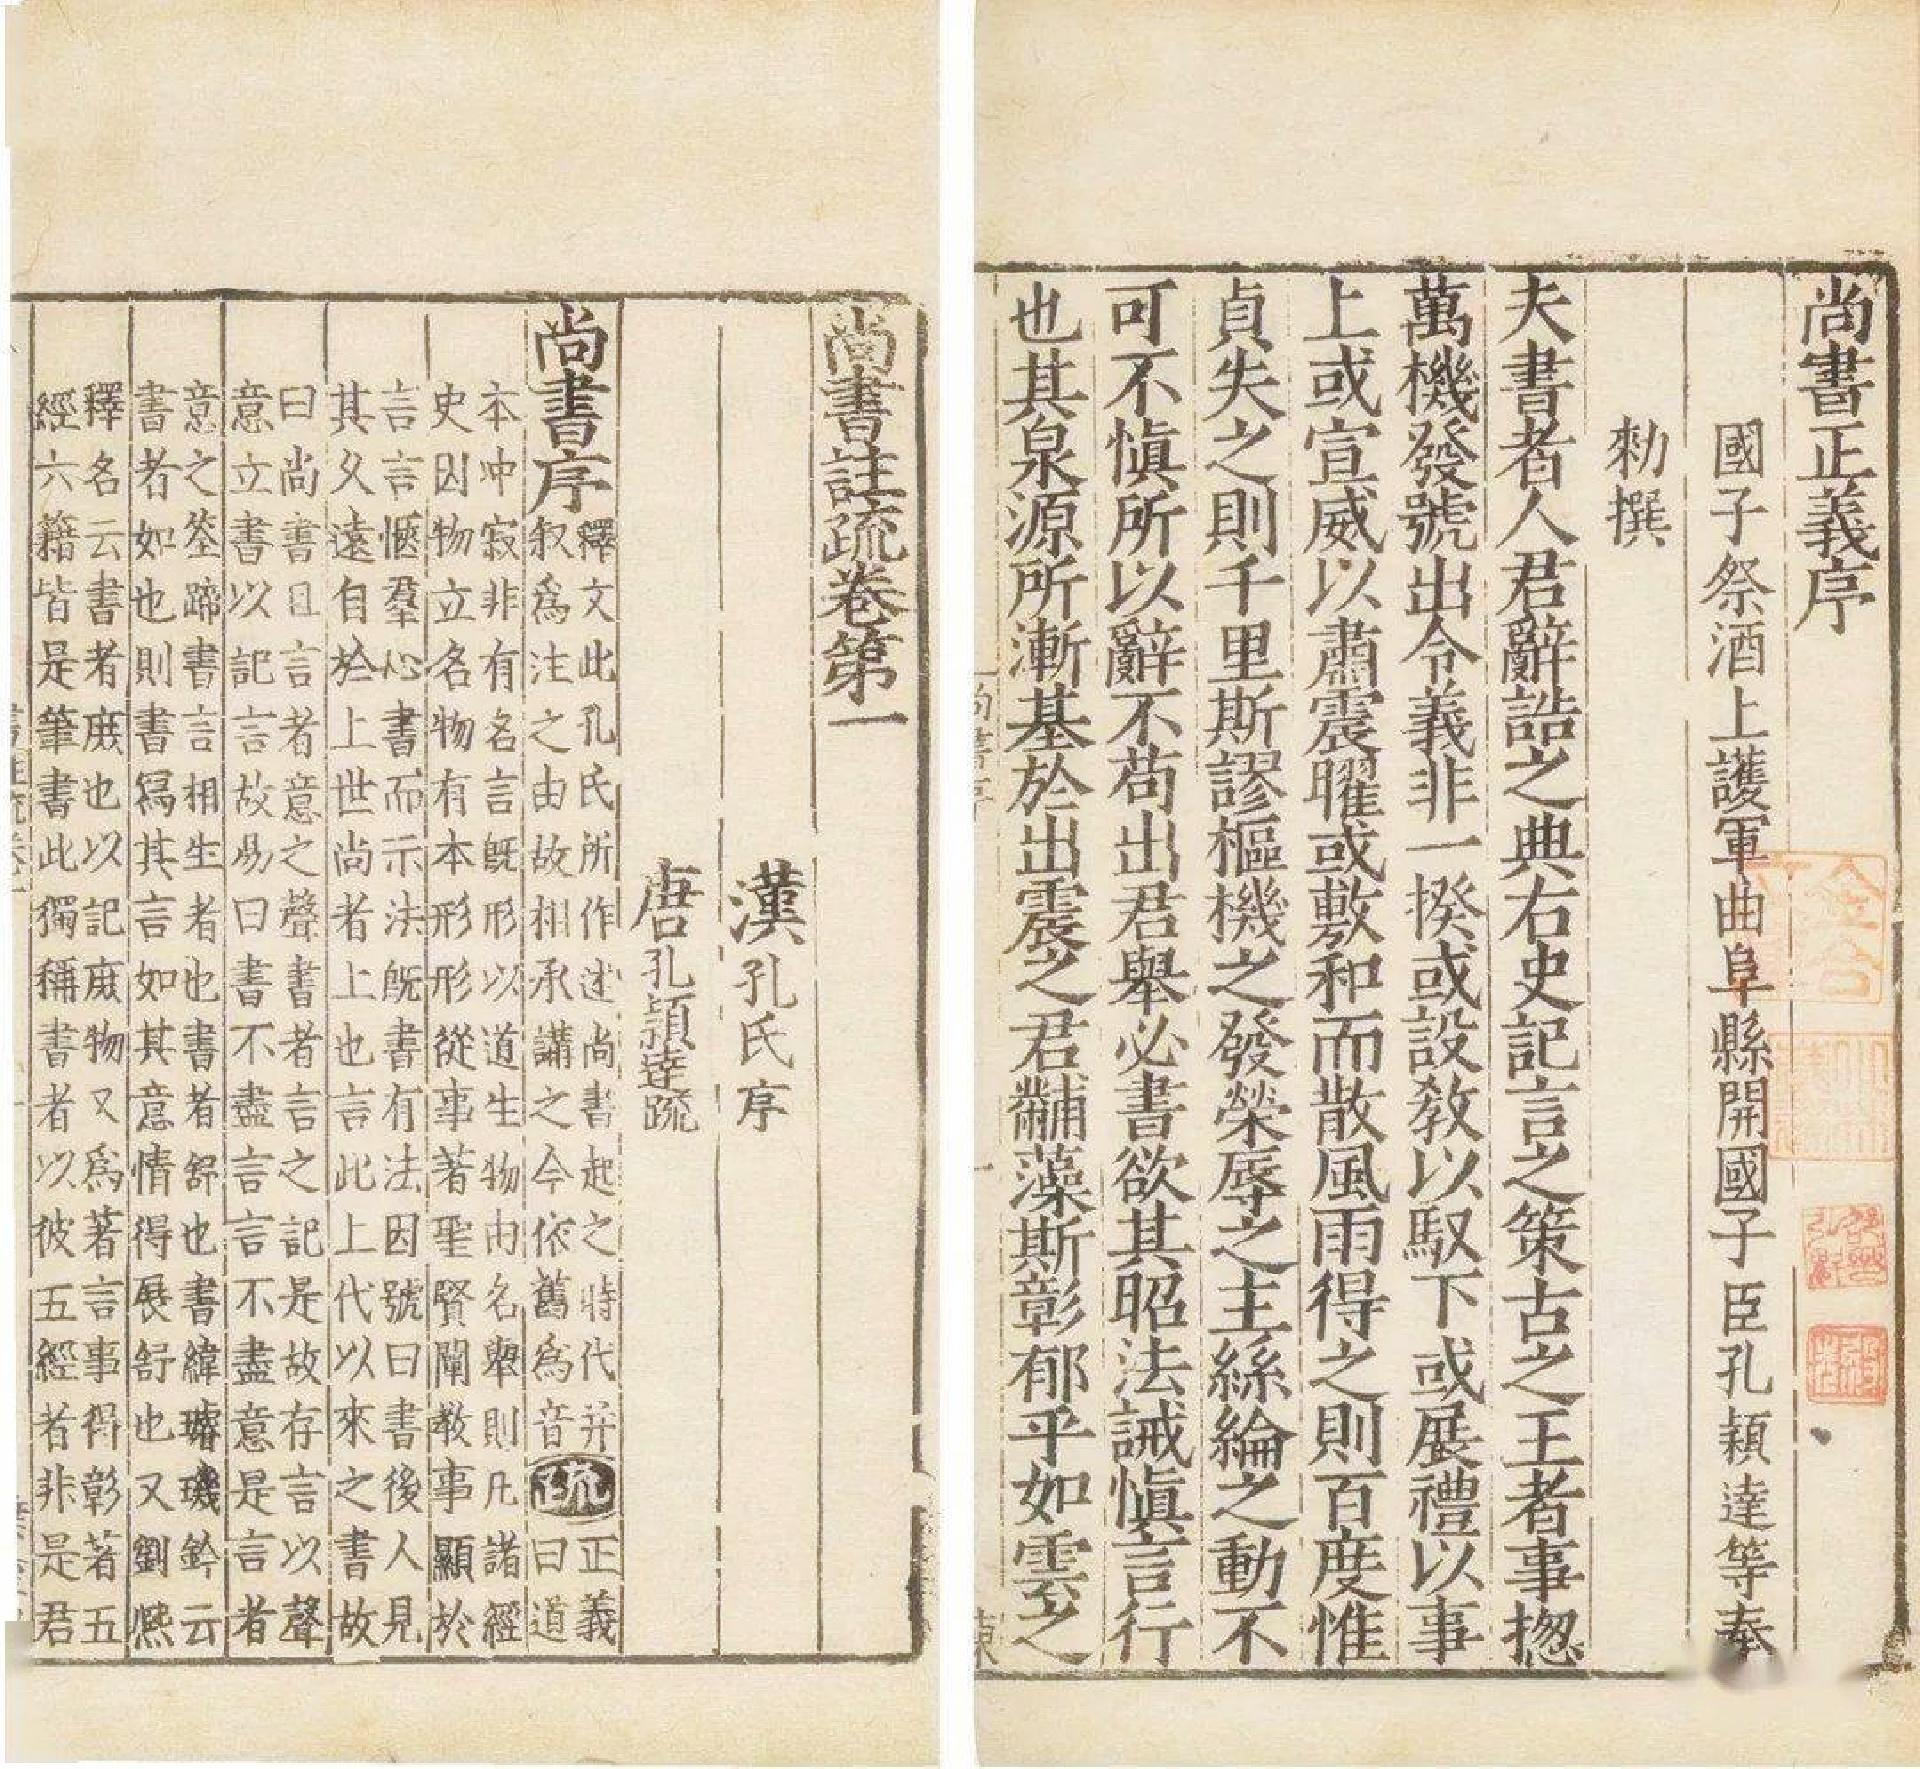 尚書正義序
國子祭酒上護軍曲阜縣開國子臣孔穎達等奉
勑撰
夫書者人君辭誥之典右史記言之策古之王者事揔
萬機發號出令義非一揆或設教以馭下或展禮以事
上或宣威以肅震曜或敷和而散風雨得之則百度惟
貞失之則千里斯謬樞機之發榮辱之主絲綸之動不
可不慎所以辭不苟出君舉必書欲其昭法誡慎言行
也其泉源所漸基於出震之君黼藻斯彰郁乎如雲之
尚書註疏卷第一
漢孔氏序
唐孔穎達疏
尚書序
釋文此孔氏所作述尚書起之時代并
叙爲注之由故相承講之今依舊爲音
疏
正義
曰道
本冲寂非有名言既形以道生物由名舉則凡諸經
史因物立名物有本形形從事著聖賢闡教事顯於
言言愜羣心書而示法既書有法因號曰書後人見
其久遠自於上世尚者上也言此上代以來之書故
曰尚書且言者意之聲書者言之記是故存言以聲
意立書以記言故易曰書不盡言言不盡意是言者
意之筌蹄書言相生者也書者舒也書緯璿璣鈐云
書者如也則書寫其言如其意情得展舒也又劉熙
釋名云書者庶也以記庶物又爲著言事得彰著五
經六籍皆是筆書此獨稱書者以彼五經者非是君